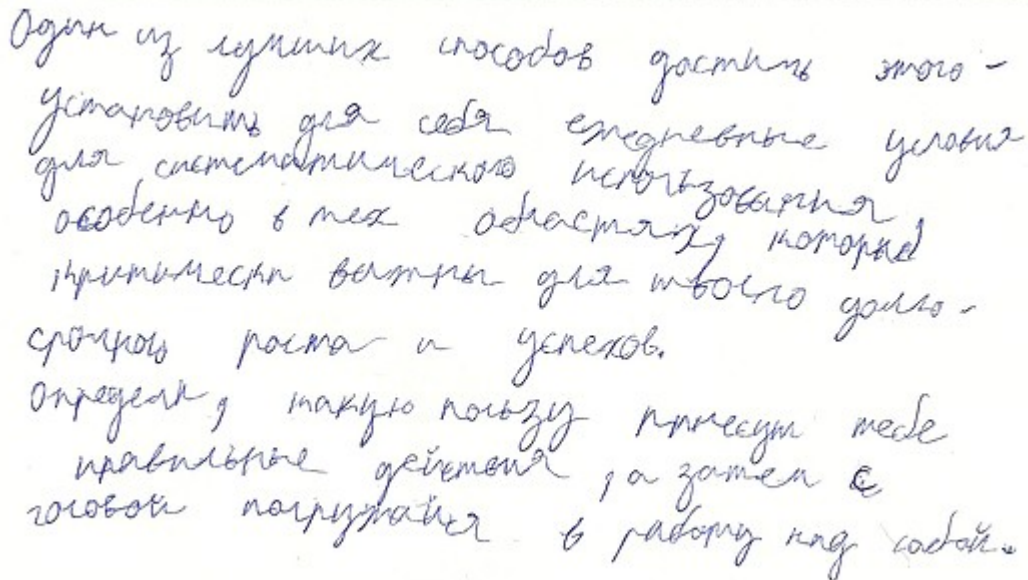 Один из лучших способов достичь этого -
установить для себя ежедневные условия
для систематического использования,
особенно в тех областях, которые
критически важны для твоего долго-
срочного роста и успехов.
Определи, какую пользу принесут тебе
правильные действия, а затем с
головой погружайся в работу над собой.